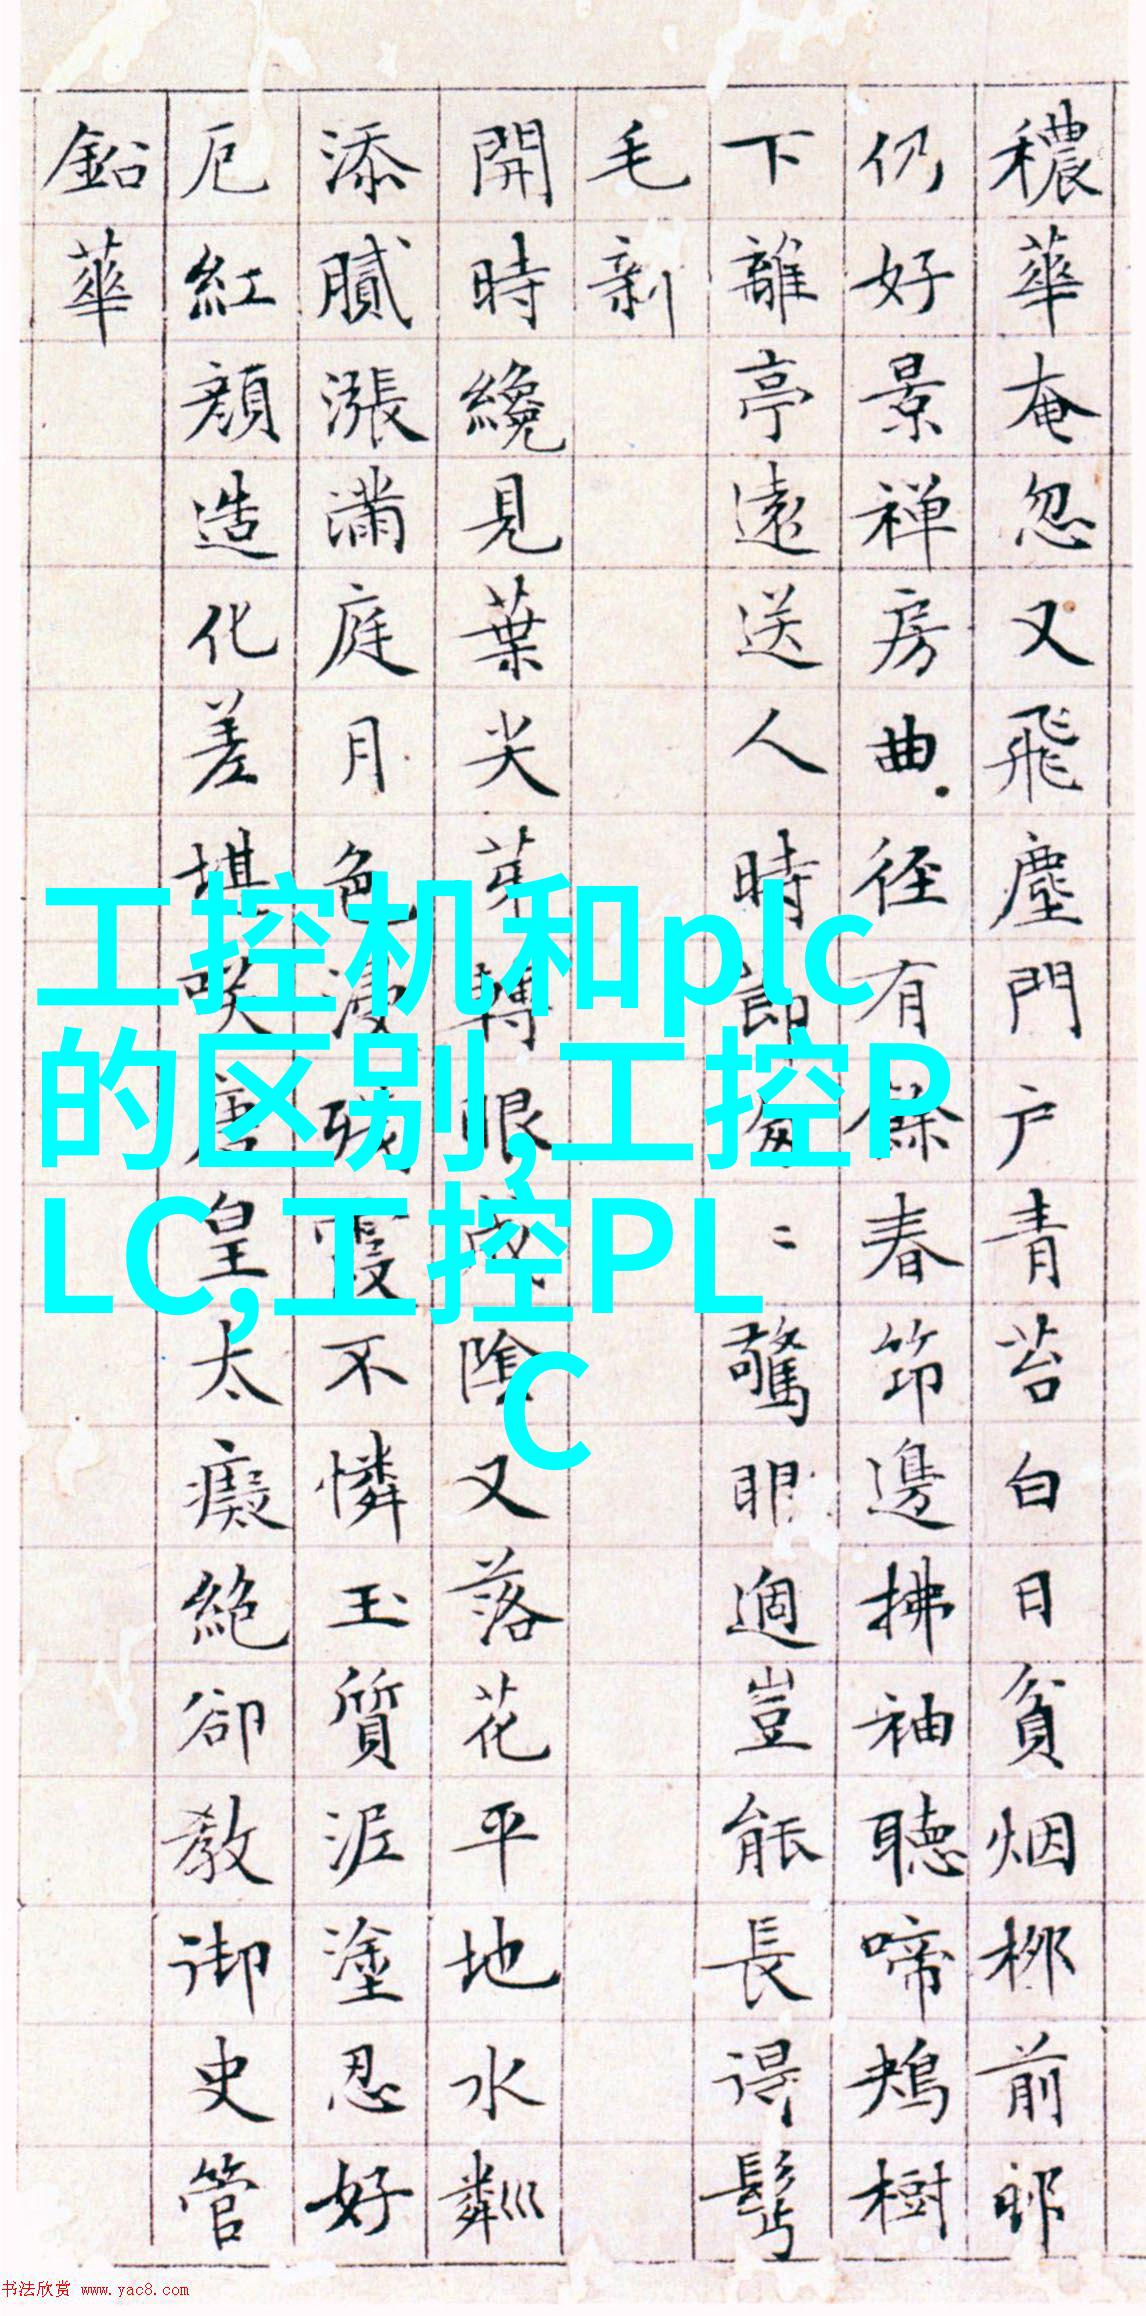 穠華奄忽又飛塵門户青苔白日貧烟栁前
仍好景禅房曲径有餘春笻邊拂袖聽啼鴂樹
下離亭遠送人時節匆〻驚眼過豈能長得鬢
毛新
開時纔見葉尖芽轉眼成陰又落花平地水粼
添膩漲滿庭月色浸殘霞不憐玉質泥塗忍好
厄紅顔造化差堪咲唐皇太癡絶卻教御史管
鉛華
工控机和plc
的区别,工控P
LC,工控PL
C
书法欣赏 www.yac8.com